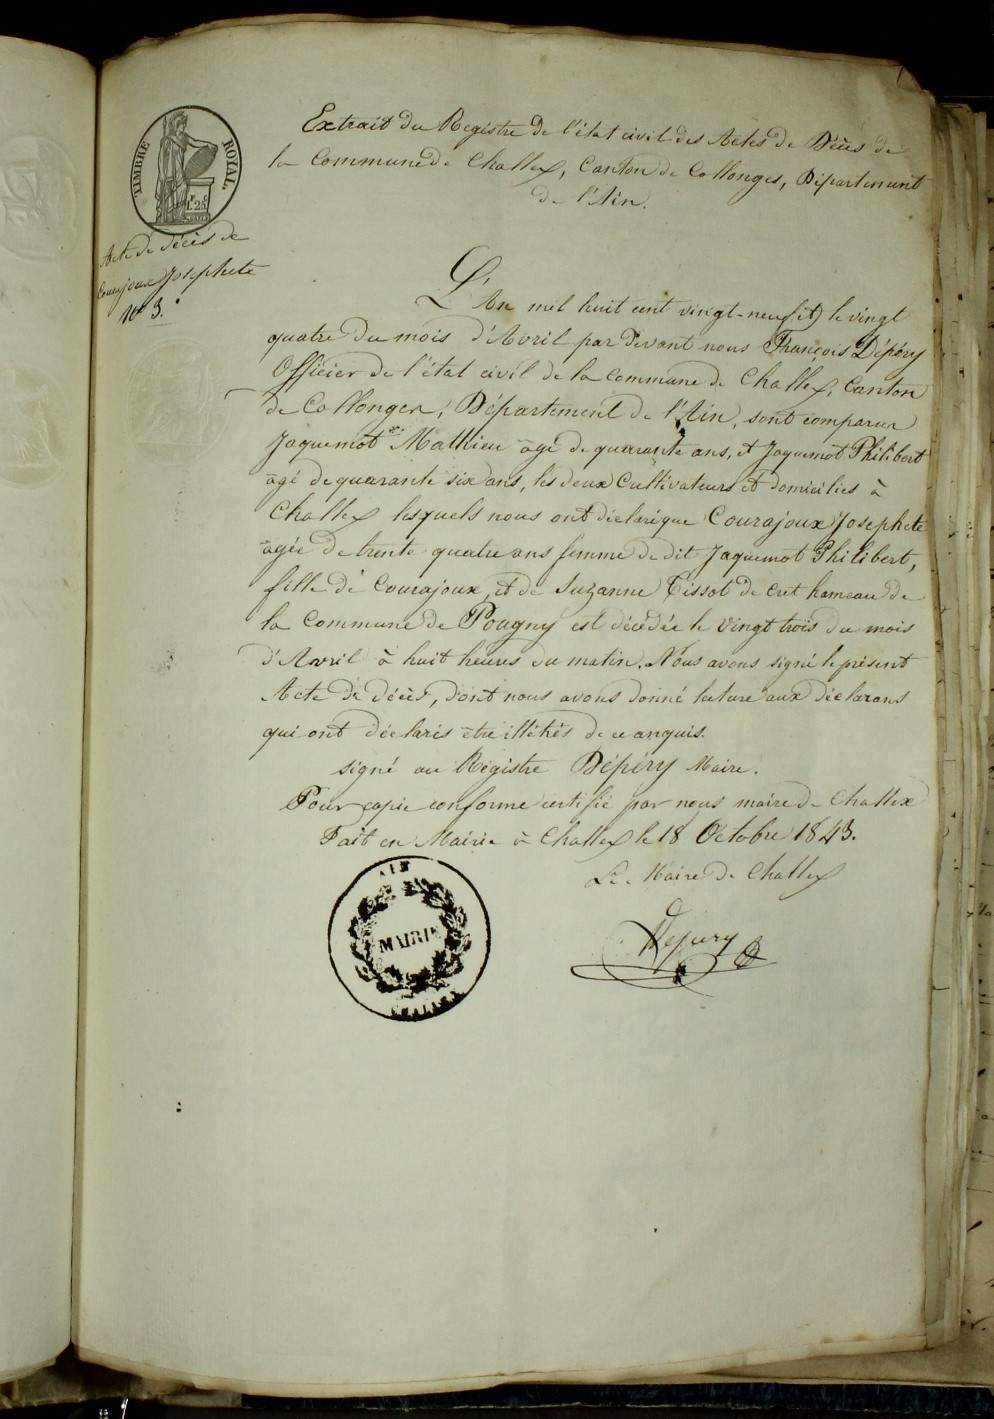 TIMBRE ROYAL
1F.25C
Extrait du Registre de l'état civil des Actes de Décès de
la Commune de Challex, Canton de Collonges, Département
de l'Ain.
Acte de décès de
Courajoux Josephete
No 3.
L'An mil huit cent vingt-neuf et le vingt
quatre du mois d'Avril par devant nous François Dépéry
Officier de l'état civil de la Commune de Challex, Canton
de Collonges, Département de l'Ain, sont comparus
Jaquemot Mathieu âgé de quarante ans, et Jaquemot Philibert
âgé de quarante six ans, les deux Cultivateurs et domiciliés à
Challex lesquels nous ont déclaré que Courajoux Josephete
âgée de trente quatre ans femme de dit Jaquemot Philibert,
fille de Courajoux, et de Suzanne Tissot de cret hameau de
la Commune de Pougny est décédée le vingt trois du mois
d'Avril à huit heures du matin. Nous avons signé le présent
Acte de décès, dont nous avons donné lecture aux déclarans
qui ont déclarés être illétrés de ce
signé au Registre Dépéry Maire.
Pour copie conforme certifié par nous maire de Challex
Fait en Mairie à Challex le 18 Octobre 1843.
Le Maire de Challex
Depery
AIN
MAIRIE